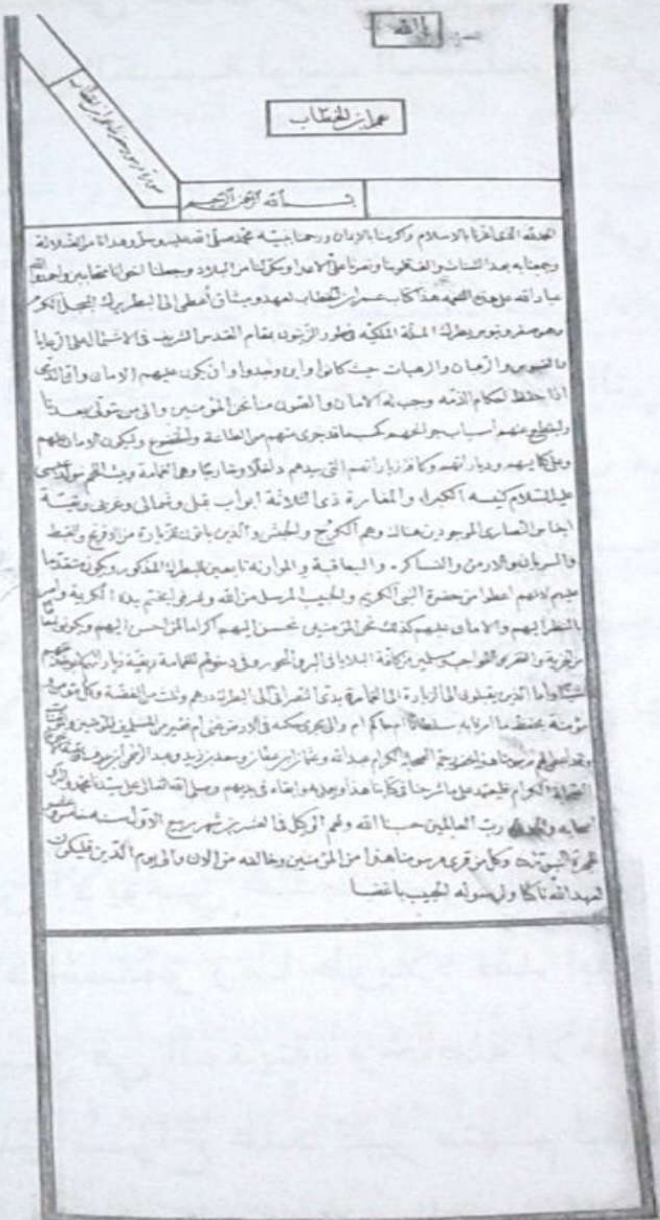 بالله
عمر ابن الخطاب
صورة مرسوم حضرة سيدنا عمر ابن الخطاب
بسم الله الرحمن الرحيم
الحمد لله الذى اعزنا بالاسلام واكرمنا بالايمان ورحمنا بنبيه محمد صلى الله عليه وسلم وهدانا من الضلالة
وجمعنا به بعد الشتات والف قلوبنا ونصرنا على الاعدا ومكن لنا من البلاد وجعلنا اخوانا متحابين واحمدوا الله
عباد الله على هذه النعمه هذا كتاب عمر ابن الخطاب لعهد وميثاق أعطى الى البطريرك المبجل المكرم
وهو صفرونيوس بطرك الملة الملكيه فى طور الزيتون بمقام القدس الشريف فى الاشتمال على الرعايا
والقسوس والرهبان والراهبات حيث كانوا واين وجدوا وان يكون عليهم الامان وان الذمى
اذا حفظ احكام الذمه وجب له الامان والصون منا نحن المؤمنين والى من يتولى بعدنا
وليقطع عنهم اسباب جوانحهم كحسب ما قد جرى منهم من الطاعة والخضوع وليكون الامان عليهم
وعلى كنايسهم وديارهم وكافة زياراتهم التى بيدهم داخلا وخارجا وهى القمامة وبيت لحم مولد عيسى
عليه السلام كنيسه الكبراء والمغارة ذى الثلاثة ابواب قبلى وشمالى وغربى وبقية
اجناس النصارى الموجودين هناك وهم الكرج والحبش والذين يأتون للزيارة من الافرنج والقبط
والسريان والارمن والنساطرة واليعاقبة والموارنة تابعين للبطرك المذكور ويكون متقدما
عليهم لانهم اعطوا من حضرة النبى الكريم والحبيب المرسل من الله وشرفوا بختم يده الكريمة وامر
بالنظر اليهم والامان عليهم كذلك نحن المؤمنين نحسن اليهم اكراما لمن احسن اليهم ويكونوا معافا
من الجزية والغفر والمواجب ومسلمين من كافة البلايا فى البر والبحور وفى دخولهم للقمامة وبقية زياراتهم لا يؤخذ منهم
شيئا واما الذين يقبلون الى الزيارة الى القمامة يؤدى النصرانى الى البطرك درهم وثلث من الفضة وكل مؤمن و
مؤمنة يحفظ ما امرنا به سلطانا ام حاكم ام والى يجرى حكمه فى الارض غنى ام فقير من المسلمين المؤمنين والمؤمنات
وقد اعطى لهم مرسومنا هذا بحضور جم الصحابة الكرام عبد الله وعثمان ابن عفان وسعد ابن زيد وعبد الرحمن ابن عوف وبقية
الصحابة الكرام فليعتمد على ما شرحنا فى كتابنا هذا ويعمل به وابقاءه فى يدهم وصلى الله تعالى على سيدنا محمد واله و
اصحابه والحمد لله رب العالمين حسبنا الله ونعم الوكيل فى العشرين من شهر ربيع الاول سنه خامس عشر
للهجرة النبوية وكل من قرى مرسومنا هذا من المؤمنين وخالفه من الان والى يوم الدين فليكن
لعهد الله ناكثا ولرسوله الحبيب باغضا